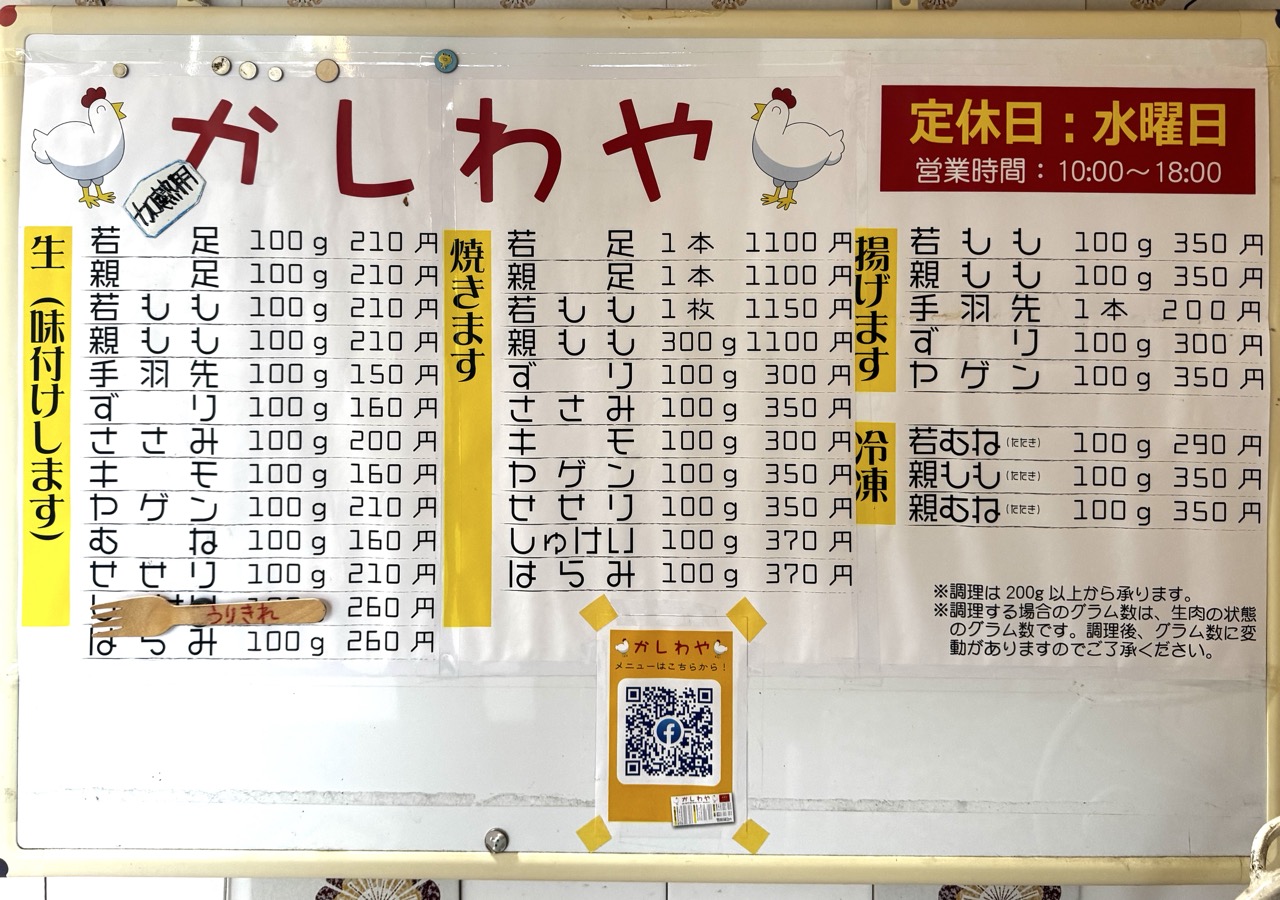 かしわや
加熱用
定休日：水曜日
営業時間：10:00～18:00
生（味付けします）
若足 100g 210円
親足 100g 210円
若もも 100g 210円
親もも 100g 210円
手羽先 100g 150円
ずり 100g 160円
ささみ 100g 200円
キモ 100g 160円
ヤゲン 100g 210円
むね 100g 160円
せせり 100g 210円
うりきれ 260円
はらみ 100g 260円
焼きます
若足 1本 1100円
親足 1本 1100円
若もも 1枚 1150円
親もも 300g 1100円
ずり 100g 300円
ささみ 100g 350円
キモ 100g 300円
ヤゲン 100g 350円
せせり 100g 350円
しゅけい 100g 370円
はらみ 100g 370円
揚げます
若もも 100g 350円
親もも 100g 350円
手羽先 1本 200円
ずり 100g 300円
ヤゲン 100g 350円
冷凍
若むね（たたき） 100g 290円
親もも（たたき） 100g 350円
親むね（たたき） 100g 350円
※調理は200g以上から承ります。
※調理する場合のグラム数は、生肉の状態
のグラム数です。調理後、グラム数に変
動がありますのでご了承ください。
かしわや
メニューはこちらから！
かしわや